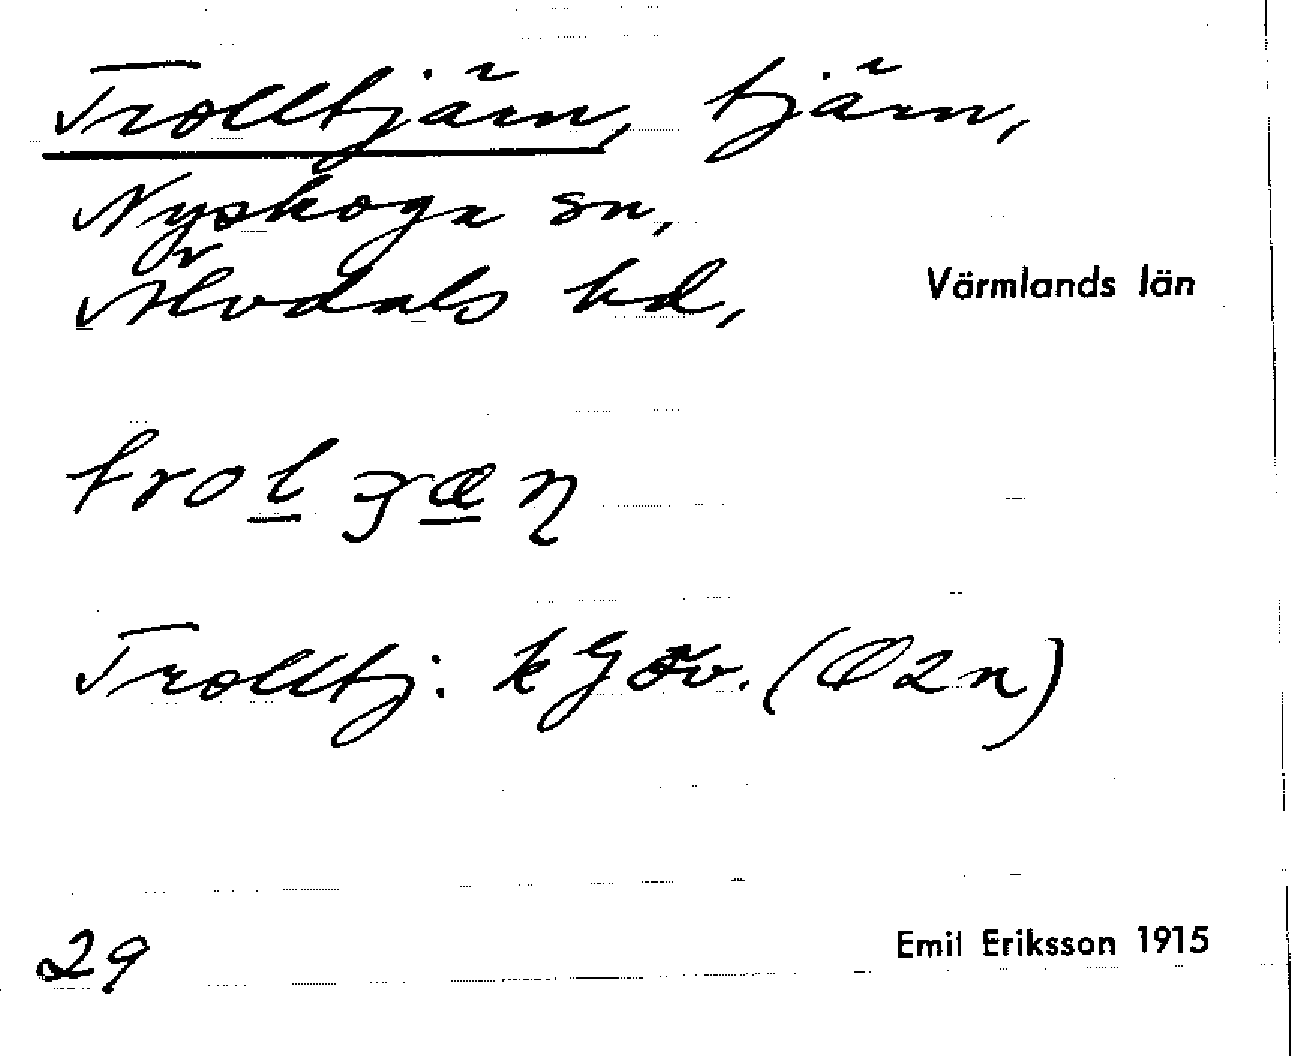 Trolltjärn, tjärn,
Nyskoga sn,
Älvdals hd,
Värmlands län
trol ʒæɳ
Trolltj. kgöv. (Ö2n)
29
Emil Eriksson 1915